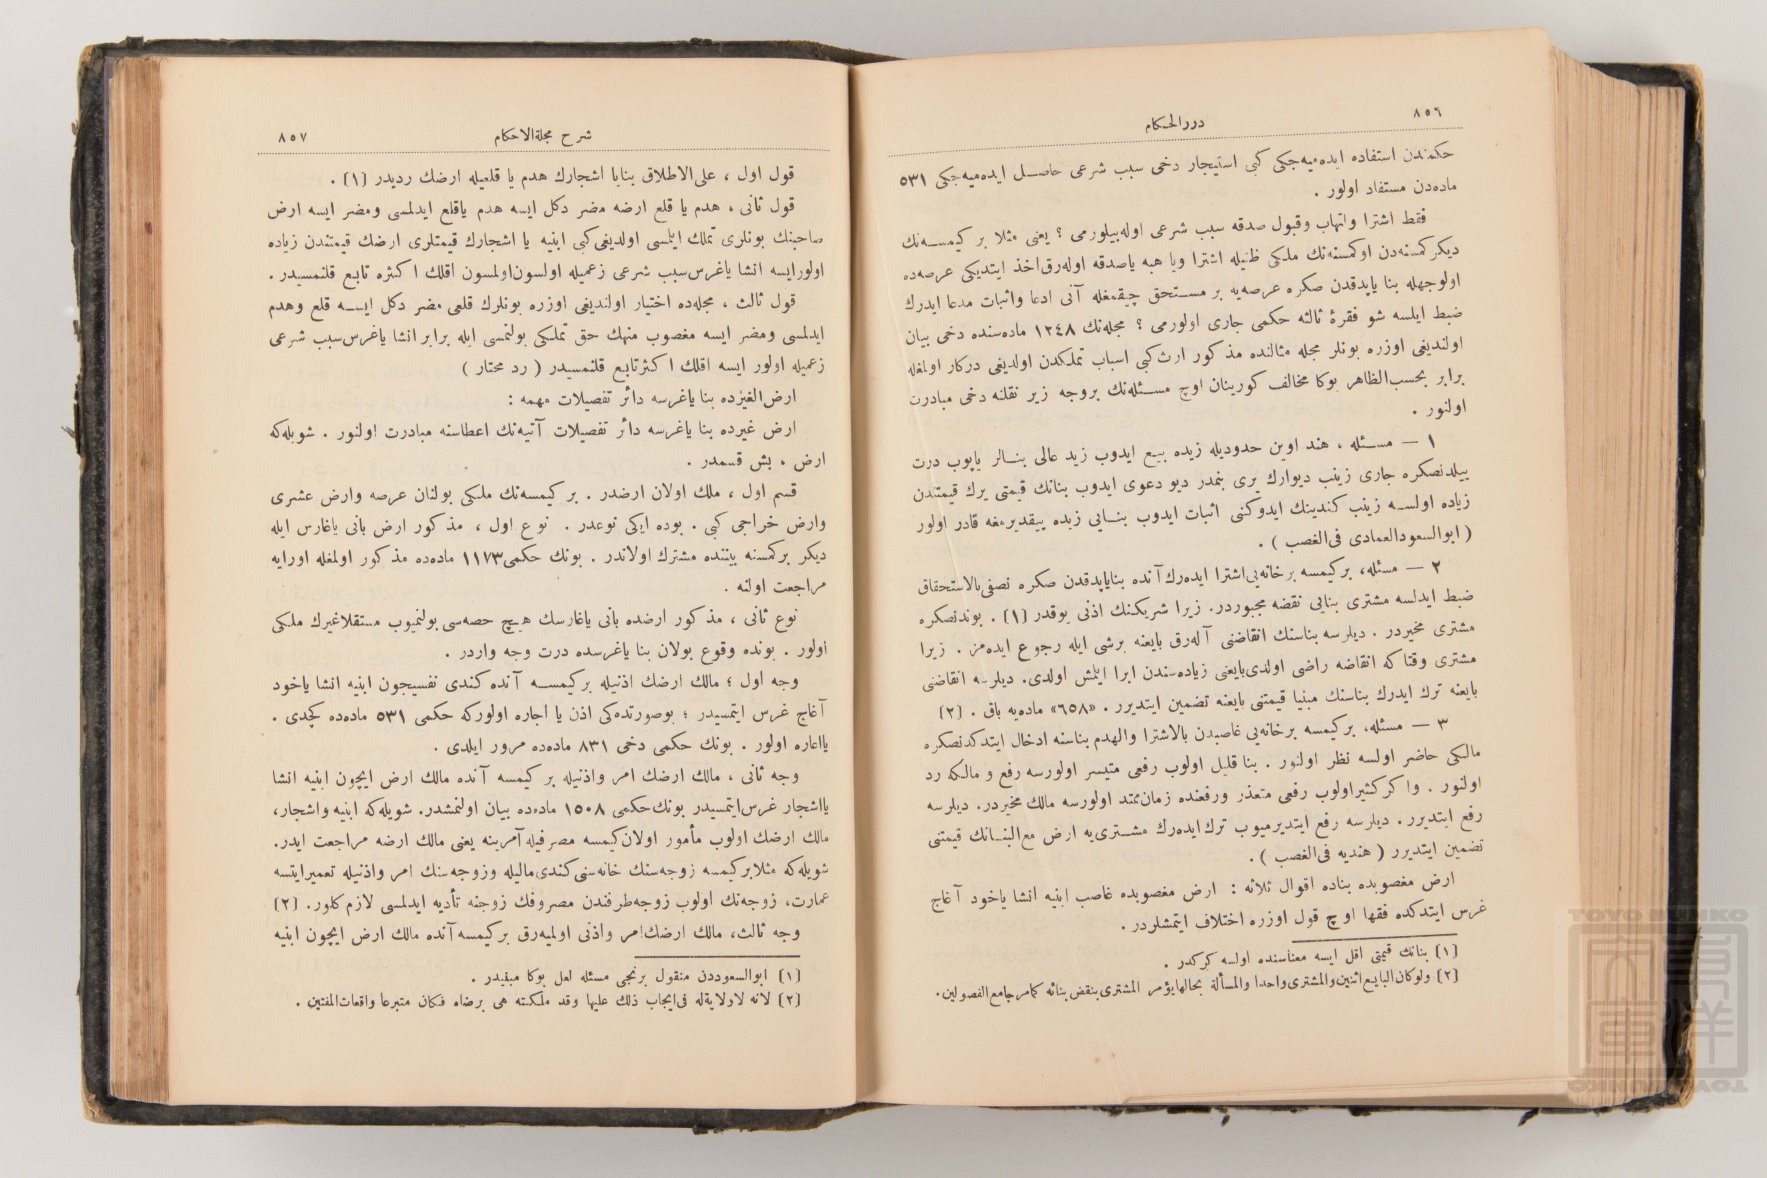 ٨٥٦
دررالحكام
حكمندن استفاده ايده‌ميه‌جكى كبى استيجار دخى سبب شرعى حاصل ايده‌ميه‌جكى ٥٣١
ماده‌دن مستفاد اولور .
فقط اشترا واتهاب وقبول صدقه سبب شرعى اوله‌بيلورمى ؟ يعنى مثلا بر كيمسه‌نك
ديكر كمسنه‌دن اوكمسنه‌نك ملكى ظنيله اشترا ويا هبه ياصدقه اوله‌رق اخذ ايتديكى عرصه‌ده
اولوجهله بنا ياپدقدن صكره عرصه‌يه بر مستحق چيقمغله آنى ادعا واثبات مدعا ايدرك
ضبط ايلسه شو فقرهٔ ثالثه حكمى جارى اولورمى ؟ مجله‌نك ١٢٤٨ ماده‌سنده دخى بيان
اولنديغى اوزره بونلر مجله مثالنده مذكور ارث كبى اسباب تملكدن اولديغى دركار اولمغله
برابر بحسب‌الظاهر بوكا مخالف كورينان اوچ مسئله‌نك بروجه زير نقلنه دخى مبادرت
اولنور .
١ — مسئله ، هند اوين حدوديله زيده بيع ايدوب زيد عالى بنالر ياپوب درت
ييلدنصكره جارى زينب ديوارك يرى بنمدر ديو دعوى ايدوب بنانك قيمتى يرك قيمتندن
زياده اولسه زينب كندينك ايدوكنى اثبات ايدوب بنايى زيده ييقديرمغه قادر اولور
( ابوالسعودالعمادى فى‌الغصب ) .
٢ — مسئله، بركيمسه برخانه‌يى اشترا ايده‌رك آنده بناياپدقدن صكره نصفى بالاستحقاق
ضبط ايدلسه مشترى بنايى نقضه مجبوردر. زيرا شريكنك اذنى يوقدر [١] . بوندنصكره
مشترى مخيردر . ديلرسه بناسنك انقاضنى آله‌رق بايعنه برشى ايله رجوع ايده‌مز . زيرا
مشترى وقتا كه انقاضه راضى اولدى بايعى زياده‌سندن ابرا ايتمش اولدى. ديلرسه انقاضى
بايعنه ترك ايدرك بناسنك مبنيا قيمتنى بايعنه تضمين ايتديرر . «٦٥٨» ماده‌يه باق . [٢]
٣ — مسئله، بركيمسه برخانه‌يى غاصبدن بالاشترا والهدم بناسنه ادخال ايتدكدنصكره
مالكى حاضر اولسه نظر اولنور . بنا قليل اولوب رفعى متيسر اولورسه رفع و مالكه رد
اولنور . واكر كثير اولوب رفعى متعذر ورفعنده زمان ممتد اولورسه مالك مخيردر. ديلرسه
رفع ايتديرر. ديلرسه رفع ايتديرميوب ترك ايده‌رك مشترى‌يه ارض مع‌البنانك قيمتنى
تضمين ايتديرر ( هنديه فى‌الغصب ) .
ارض مغصوبه‌ده بناده اقوال ثلاثه : ارض مغصوبه‌ده غاصب ابنيه انشا ياخود آغاج
غرس ايتدكده فقها اوچ قول اوزره اختلاف ايتمشلردر .
[١] بنانك قيمتى اقل ايسه معناسنده اولسه كركدر .
[٢] ولوكان البايع اثنين والمشترى واحدا والمسألة بحالها يؤمر المشترى بنقض بنائه كمامر جامع‌الفصولين.
شرح مجلةالاحكام
٨٥٧
قول اول ، على‌الاطلاق بنايا اشجارك هدم يا قلعيله ارضك رديدر [١] .
قول ثانى ، هدم يا قلع ارضه مضر دكل ايسه هدم ياقلع ايدلمسى ومضر ايسه ارض
صاحبنك بونلرى تملك ايلمسى اولديغى كبى ابنيه يا اشجارك قيمتلرى ارضك قيمتندن زياده
اولورايسه انشا ياغرس سبب شرعى زعميله اولسون اولمسون اقلك اكثره تابع قلنمسيدر .
قول ثالث ، مجله‌ده اختيار اولنديغى اوزره بونلرك قلعى مضر دكل ايسه قلع وهدم
ايدلمسى ومضر ايسه مغصوب منهك حق تملكى بولنمسى ايله برابر انشا ياغرس سبب شرعى
زعميله اولور ايسه اقلك اكثرتابع قلنمسيدر ( رد محتار )
ارض‌الغيرده بنا ياغرسه دائر تفصيلات مهمه :
ارض غيرده بنا ياغرسه دائر تفصيلات آتيه‌نك اعطاسنه مبادرت اولنور . شويله‌كه
ارض ، بش قسمدر .
قسم اول ، ملك اولان ارضدر . بر كيمسه‌نك ملكى بولنان عرصه وارض عشرى
وارض خراجى كبى . بوده ايكى نوعدر . نوع اول ، مذكور ارض بانى ياغارس ايله
ديكر بركمسنه بيننده مشترك اولاندر . بونك حكمى ١١٧٣ ماده‌ده مذكور اولمغله اورايه
مراجعت اولنه .
نوع ثانى ، مذكور ارضده بانى ياغارسك هيچ حصه‌سى بولنميوب مستقلا غيرك ملكى
اولور . بونده وقوع بولان بنا ياغرسده درت وجه واردر .
وجه اول ؛ مالك ارضك اذنيله بركيمسه آنده كندى نفسيچون ابنيه انشا ياخود
آغاج غرس ايتمسيدر ؛ بوصورتده‌كى اذن يا اجاره اولوركه حكمى ٥٣١ ماده‌ده كچدى .
يااعاره اولور . بونك حكمى دخى ٨٣١ ماده‌ده مرور ايلدى .
وجه ثانى ، مالك ارضك امر واذنيله بر كيمسه آنده مالك ارض ايچون ابنيه انشا
يااشجار غرس ايتمسيدر بونك حكمى ١٥٠٨ ماده‌ده بيان اولنمشدر. شويله‌كه ابنيه واشجار،
مالك ارضك اولوب مأمور اولان كيمسه مصرفيله آمرينه يعنى مالك ارضه مراجعت ايدر.
شويله‌كه مثلا بركيمسه زوجه‌سنك خانه‌سنى كندى ماليله وزوجه‌سنك امر واذنيله تعمير ايتسه
عمارت، زوجه‌نك اولوب زوجه طرفندن مصروفك زوجنه تأديه ايدلمسى لازم كلور. [٢]
وجه ثالث، مالك ارضك امر واذنى اولميه‌رق بركيمسه آنده مالك ارض ايچون ابنيه
[١] ابوالسعوددن منقول برنجى مسئله لعل بوكا مبنيدر .
[٢] لانه لاولايةله فى‌ايجاب ذلك عليها وقد ملكته هى برضاه فكان متبرعا واقعات‌المفتين .
TOYO BUNKO
TOYO BUNKO